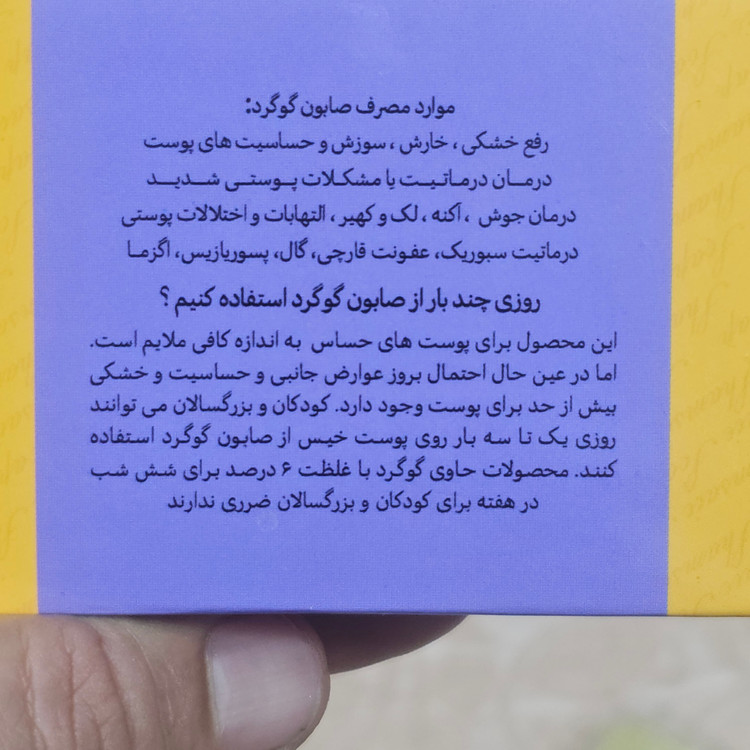 موارد مصرف صابون گوگرد:
رفع خشکی ، خارش ، سوزش و حساسیت های پوست
درمـــان درمـاتـیـت یا مشـکـلات پـوسـتـی شـــدیـــد
درمان جوش ، آکنه ، لک و کهیر ، التهابات و اختلالات پوستی
درماتیت سبوریک، عفونت قارچی، گال، پسوریازیس، اگزمـا
روزی چند بار از صابون گوگرد استفاده کنیم ؟
این محصول برای پوست های حساس به اندازه کافی ملایم است.
اما در عین حال احتمال بروز عوارض جانبی و حساسیت و خشکی
بیش از حد برای پوست وجود دارد. کودکان و بزرگسالان می توانند
روزی یک تا سه بار روی پوست خیس از صابون گوگرد استفاده
کنند. محصولات حاوی گوگرد با غلظت ۶ درصد برای شش شب
در هفته برای کودکان و بزرگسالان ضرری ندارند